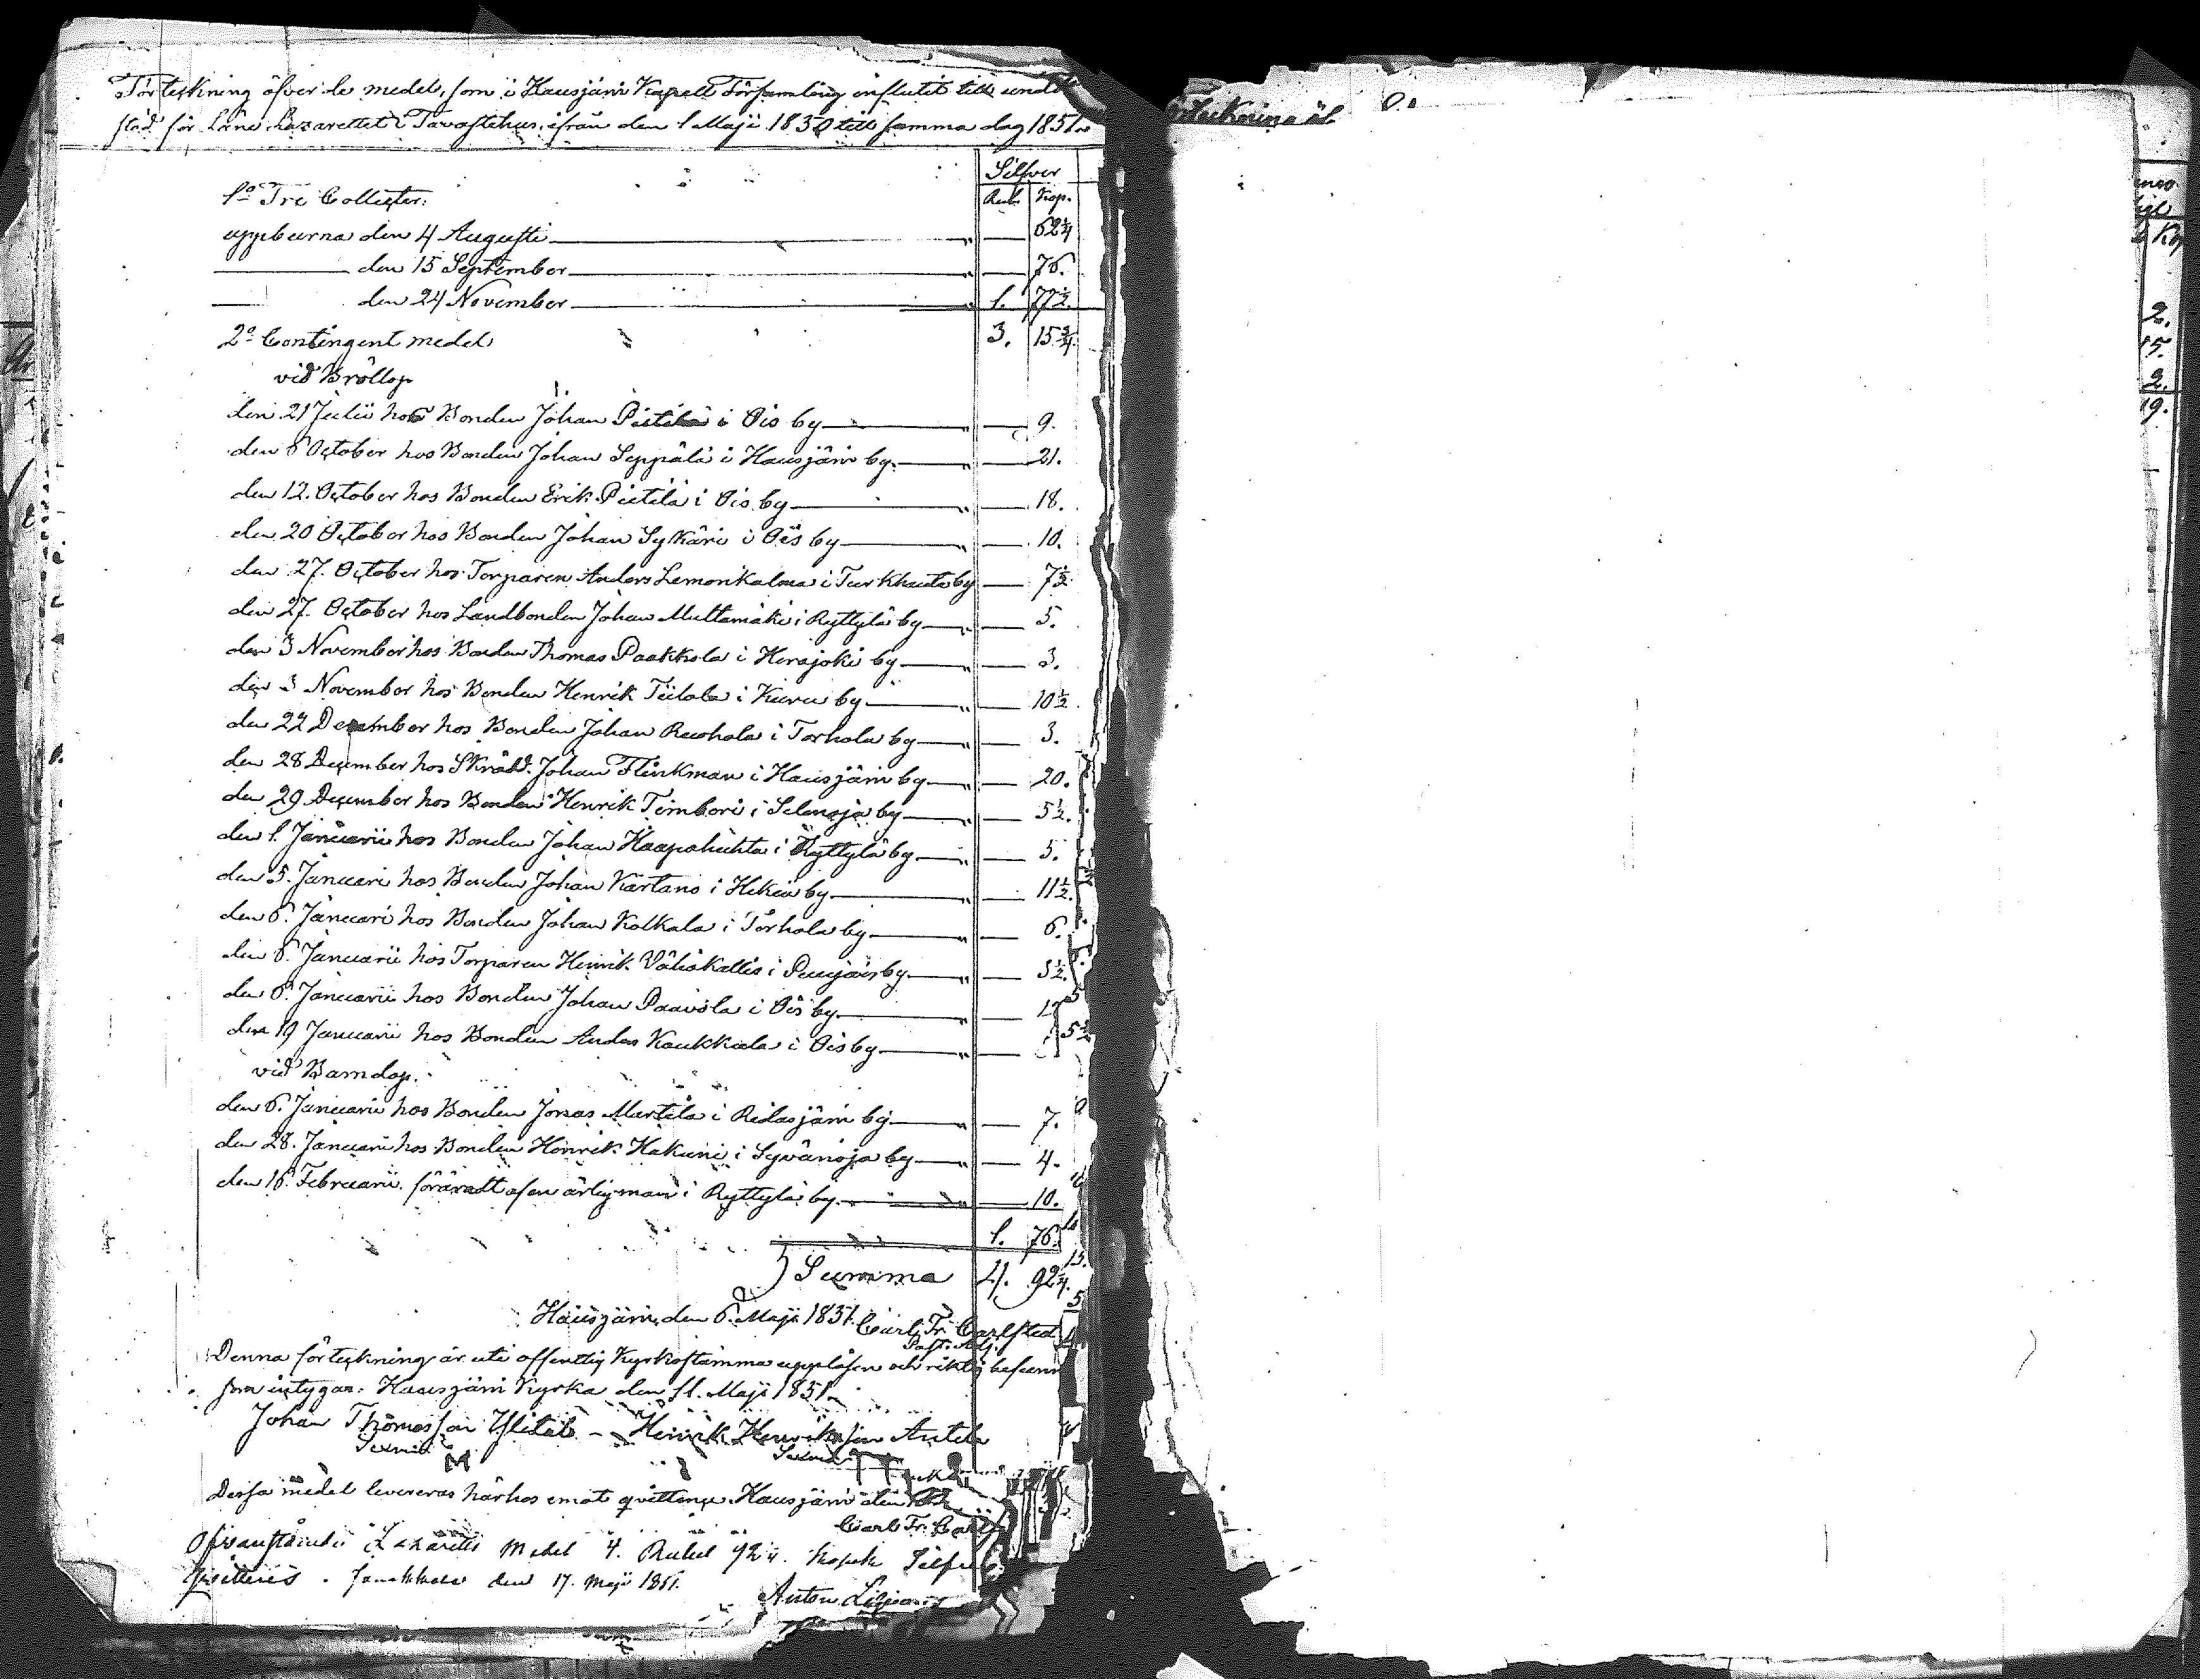 Förteckning öfver de medel, som i Hausjärvi Kapell Församling influtit till under
stöd för Läns Lazarettet i Tavastehus, ifrån den 1 Maji 1850 till samma dag 1851.
Silfver
1o Tre Collecter: Rub. Kop.
uppburna den 4 Augusti — 62 1/4
den 15 September — 76.
den 24 November 1. 77 1/2.
2o Contingent medel 3. 15 3/4.
vid Bröllop
den 21 Julii hos Bonden Johan Pietilä i Ois by — 9.
den 6 October hos Bonden Johan Seppälä i Hausjärvi by — 21.
den 12. October hos Bonden Erik Pietilä i Ois by — 18.
den 20 October hos Bonden Johan Sykäri i Ois by — 10.
den 27. October hos Torparen Anders Lemonkalma i Turkhauta by — 7 1/2.
den 27. October hos Landbonden Johan Multamäki i Ryttylä by — 5.
den 3 November hos Bonden Thomas Paakkola i Herajoki by — 3.
den 3 November hos Bonden Henrik Tiilola i Kuru by — 10 1/2.
den 22 December hos Bonden Johan Ruohola i Torhola by — 3.
den 28 December hos Skrädd. Johan Flinkman i Hausjärvi by — 20.
den 29 December hos Bonden Henrik Timbori i Selenoja by — 5 1/2.
den 1. Januarii hos Bonden Johan Haapahuhta i Ryttylä by — 5.
den 5. Januari hos Bonden Johan Kartano i Hikiä by — 11 1/2.
den 6. Januari hos Bonden Johan Kolkala i Torhola by — 6.
den 6. Januarii hos Torparen Henrik Väliskallio i Punjärs by — 3 1/2.
den 6. Januarii hos Bonden Johan Paavola i Ois by
den 19 Januarii hos Bonden Anders Kaukkala i Ois by
vid Barndop.
den 6. Januarii hos Bonden Jonas Martila i Ridasjärvi by — 7.
den 28. Januarii hos Bonden Henrik Hakuni i Syvänoja by — 4.
den 16. Februarii föräradt af en ärlig man i Ryttylä by — 10.
1. 76.
Summa 4. 92 1/4.
Hausjärvi, den 6. Maji 1851. Carl Fr. Carlsted
Past. Adj.
Denna förteckning är uti offentlig Kyrkostämma uppläsen och riktig befunn
som intygar: Hausjärvi Kyrka den 11. Maji 1851.
Johan Thomasson Ylitalo – Henrik Henriksson Antila
Sexman Sexman
Dessa medel levereras härhos emot qvittence. Hausjärvi den
Carl Fr. Carl
Ofvanstående Lazaretts Medel 4. Rubel 92 1/4. kopek Silfver
qvitteras. Janakkala den 17. Maji 1851.
Anton